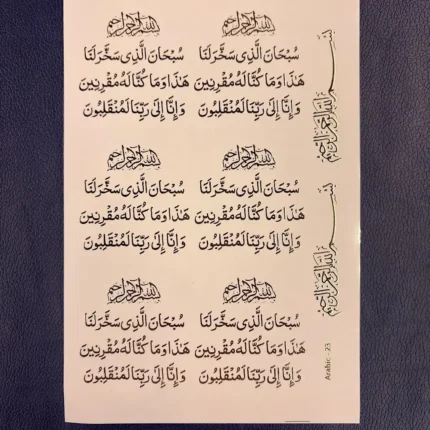 بسم الله الرحمن الرحيم
سُبْحَانَ الَّذِى سَخَّرَ لَنَا
هَذَا وَمَا كُنَّا لَهُ مُقْرِنِينَ
وَإِنَّا إِلَى رَبِّنَا لَمُنْقَلِبُونَ
بسم الله الرحمن الرحيم
سُبْحَانَ الَّذِى سَخَّرَ لَنَا
هَذَا وَمَا كُنَّا لَهُ مُقْرِنِينَ
وَإِنَّا إِلَى رَبِّنَا لَمُنْقَلِبُونَ
بسم الله الرحمن الرحيم
بسم الله الرحمن الرحيم
سُبْحَانَ الَّذِى سَخَّرَ لَنَا
هَذَا وَمَا كُنَّا لَهُ مُقْرِنِينَ
وَإِنَّا إِلَى رَبِّنَا لَمُنْقَلِبُونَ
بسم الله الرحمن الرحيم
سُبْحَانَ الَّذِى سَخَّرَ لَنَا
هَذَا وَمَا كُنَّا لَهُ مُقْرِنِينَ
وَإِنَّا إِلَى رَبِّنَا لَمُنْقَلِبُونَ
بسم الله الرحمن الرحيم
بسم الله الرحمن الرحيم
سُبْحَانَ الَّذِى سَخَّرَ لَنَا
هَذَا وَمَا كُنَّا لَهُ مُقْرِنِينَ
وَإِنَّا إِلَى رَبِّنَا لَمُنْقَلِبُونَ
بسم الله الرحمن الرحيم
سُبْحَانَ الَّذِى سَخَّرَ لَنَا
هَذَا وَمَا كُنَّا لَهُ مُقْرِنِينَ
وَإِنَّا إِلَى رَبِّنَا لَمُنْقَلِبُونَ
Arabic - 23